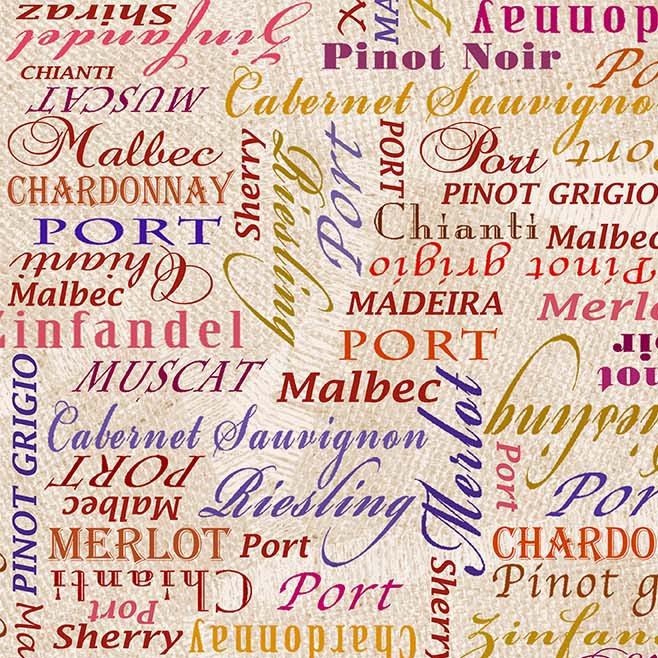 Shiraz
Zinfandel
MA
Chardonnay
Pinot Noir
CHIANTI
MUSCAT
Cabernet Sauvigno
Po
Malbec
Sherry
Riesling
Port
PORT
Port
Port
CHARDONNAY
PINOT GRIGIO
PORT
Chianti
Malbec
Chianti
Pinot grigio
Malbec
MADEIRA
Merlo
Zinfandel
PORT
Pinot Noir
MUSCAT
Malbec
Riesling
PINOT GRIGIO
Cabernet Sauvignon
Merlot
PORT
Port
Malbec
Riesling
Port
MERLOT
Port
CHARDO
Chianti
Port
Sherry
Pinot g
Port
Ma
Sherry
Chardonnay
Zinfan